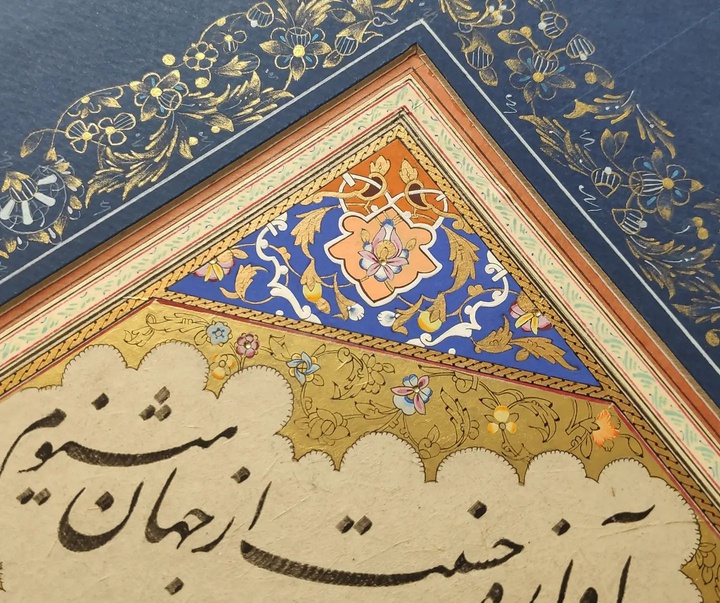 آوازه حسنت از جهان میشنوم